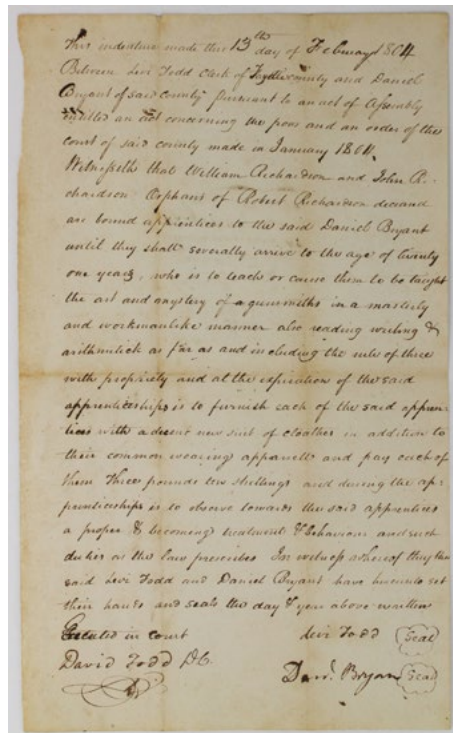 This indenture made this 13th day of February 1804
Between Levi Todd Clerk of Fayette county and Daniel
Bryant of said county Pursuant to an act of Assembly
entitled an act concerning the poor and an order of the
court of said county made in January 1804.
Witnesseth that William Richardson and John R-
chardson Orphans of Robert Richardson deceased
are bound apprentices to the said Daniel Bryant
until they shall severally arrive to the age of twenty
one years, who is to teach or cause them to be taught
the art and mystery of a gunsmiths in a masterly
and workmanlike manner also reading writing &
arithmetick as far as and including the rule of three
with propriety and at the expiration of the said
apprenticeships is to furnish each of the said appren
tices with a decent new suit of cloathes in addition to
their common wearing apparell and pay each of
them Three pounds ten shillings and during the ap-
prenticeships is to observe towards the said apprentices
a proper & becoming treatment & behaviour and such
duties as the law prescribes In witness whereof they the
said Levi Todd and Daniel Bryant have hereunto set
their hands and seals the day & year above written
Executed in court
Levi Todd Seal
David Todd DC.
Danl. Bryan Seal